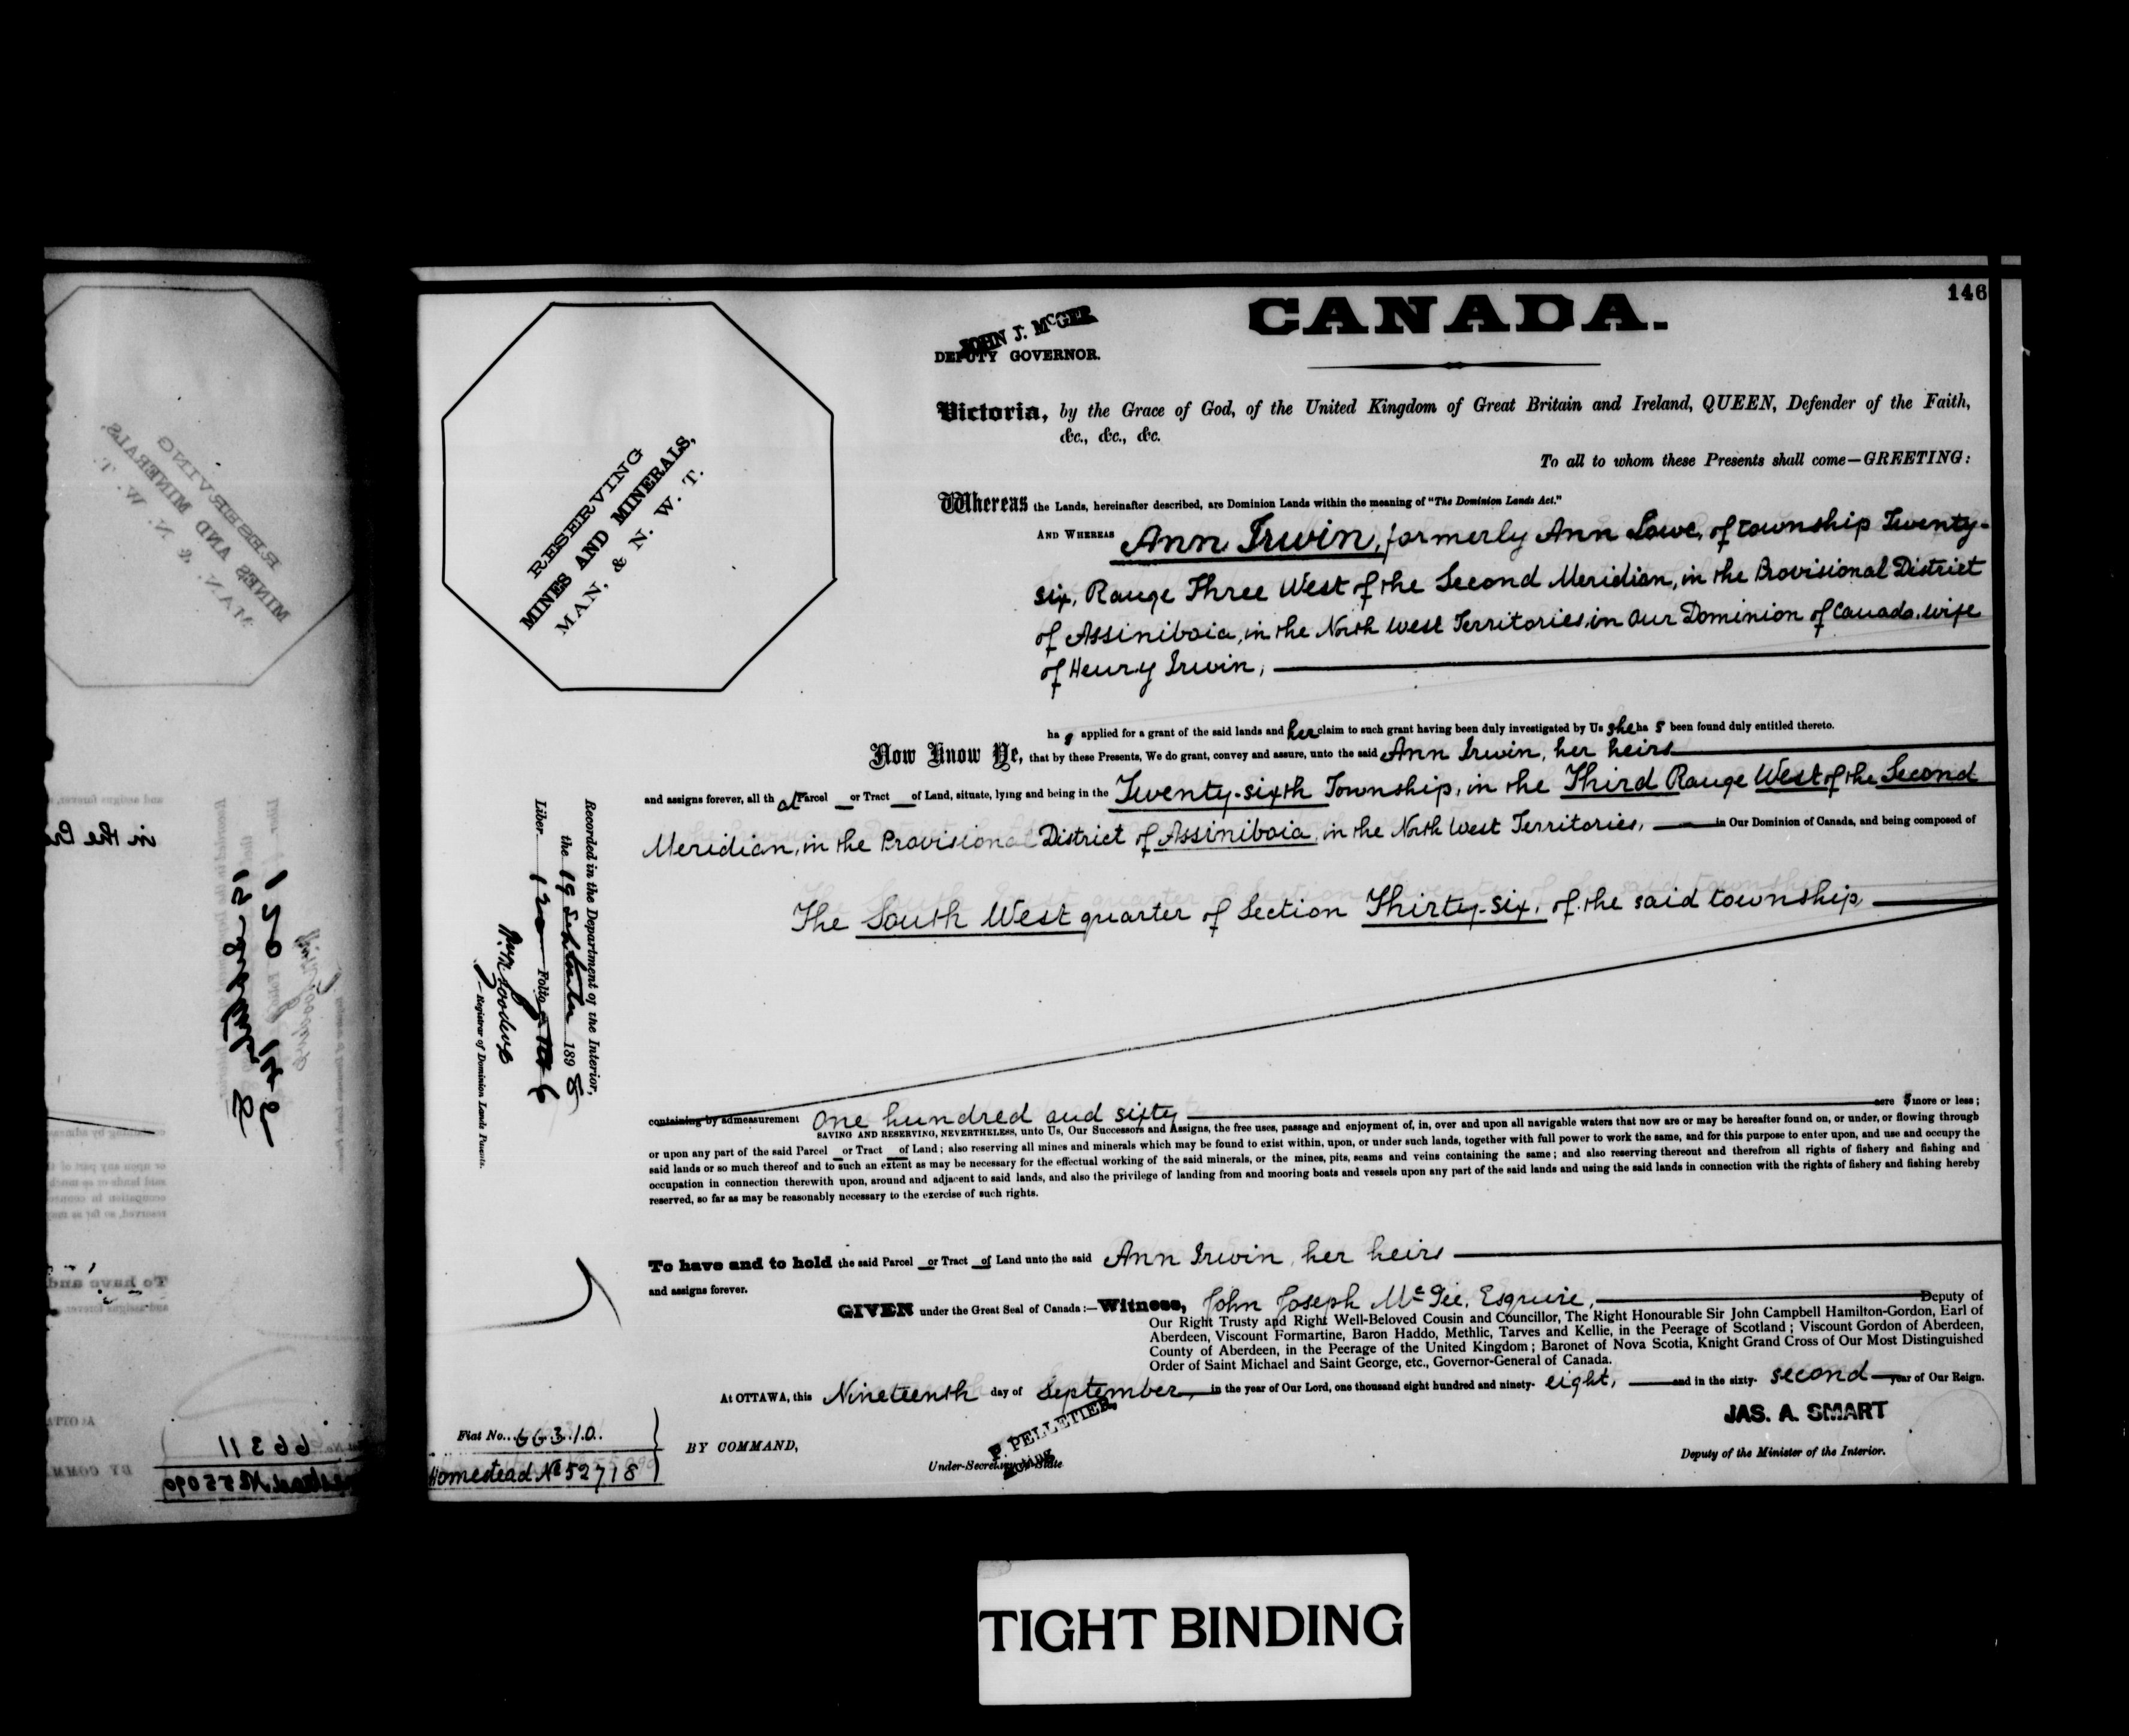 146
CANADA.
JOHN J. McGEE
DEPUTY GOVERNOR.
RESERVING
MINES AND MINERALS,
MAN, & N. W. T.
Victoria, by the Grace of God, of the United Kingdom of Great Britain and Ireland, QUEEN, Defender of the Faith,
&c., &c., &c.
To all to whom these Presents shall come—GREETING:
Whereas the Lands, hereinafter described, are Dominion Lands within the meaning of "The Dominion Lands Act."
AND WHEREAS Ann Irwin, formerly Ann Lowe, of township Twenty-
six, Range Three West of the Second Meridian, in the Provisional District
of Assiniboia, in the North West Territories, in Our Dominion of Canada, wife
of Henry Irwin,
has applied for a grant of the said lands and her claim to such grant having been duly investigated by Us she has been found duly entitled thereto.
Now Know Ye, that by these Presents, We do grant, convey and assure, unto the said Ann Irwin, her heirs
and assigns forever, all that Parcel or Tract of Land, situate, lying and being in the Twenty-sixth Township, in the Third Range West of the Second
Meridian, in the Provisional District of Assiniboia, in the North West Territories, in Our Dominion of Canada, and being composed of
The South West quarter of Section Thirty-six, of the said township
containing by admeasurement One hundred and sixty acres more or less;
SAVING AND RESERVING, NEVERTHELESS, unto Us, Our Successors and Assigns, the free uses, passage and enjoyment of, in, over and upon all navigable waters that now are or may be hereafter found on, or under, or flowing through
or upon any part of the said Parcel or Tract of Land; also reserving all mines and minerals which may be found to exist within, upon, or under such lands, together with full power to work the same, and for this purpose to enter upon, and use and occupy the
said lands or so much thereof and to such an extent as may be necessary for the effectual working of the said minerals, or the mines, pits, seams and veins containing the same; and also reserving thereout and therefrom all rights of fishery and fishing and
occupation in connection therewith upon, around and adjacent to said lands, and also the privilege of landing from and mooring boats and vessels upon any part of the said lands and using the said lands in connection with the rights of fishery and fishing hereby
reserved, so far as may be reasonably necessary to the exercise of such rights.
To have and to hold the said Parcel or Tract of Land unto the said Ann Irwin, her heirs
and assigns forever.
GIVEN under the Great Seal of Canada:—Witness, John Joseph McGee, Esquire, Deputy of
Our Right Trusty and Right Well-Beloved Cousin and Councillor, The Right Honourable Sir John Campbell Hamilton-Gordon, Earl of
Aberdeen, Viscount Formartine, Baron Haddo, Methlic, Tarves and Kellie, in the Peerage of Scotland; Viscount Gordon of Aberdeen,
County of Aberdeen, in the Peerage of the United Kingdom; Baronet of Nova Scotia, Knight Grand Cross of Our Most Distinguished
Order of Saint Michael and Saint George, etc., Governor-General of Canada.
At OTTAWA, this Nineteenth day of September, in the year of Our Lord, one thousand eight hundred and ninety-eight, and in the sixty-second year of Our Reign.
JAS. A. SMART
Deputy of the Minister of the Interior.
BY COMMAND,
P. PELLETIER,
Under-Secretary of State
Fiat No. 66310.
Homestead No 52718
Recorded in the Department of the Interior,
the 19 September 1898
Liber 120 Folio 146
Registrar of Dominion Lands Patents.
66311
No 55090
TIGHT BINDING